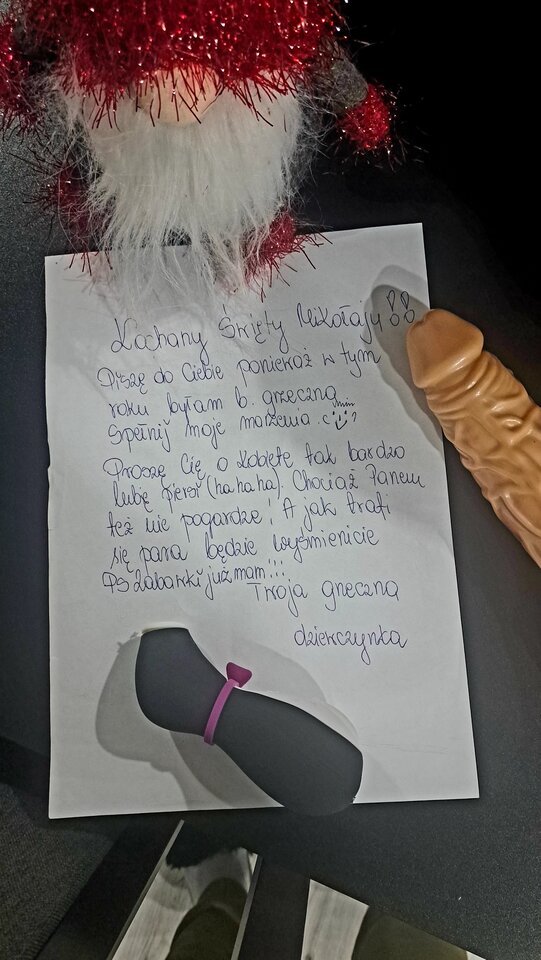 Kochany Święty Mikołaju!!
Piszę do Ciebie ponieważ w tym
roku byłam b. grzeczna
Spełnij moje marzenia.
Proszę Cię o kobietę tak bardzo
lubię piersi (ha ha ha). Chociaż Panem
też nie pogardzę! A jak trafi
się para będzie wyśmienicie
PS Zabawki już mam!!!
Twoja grzeczna
dziewczynka